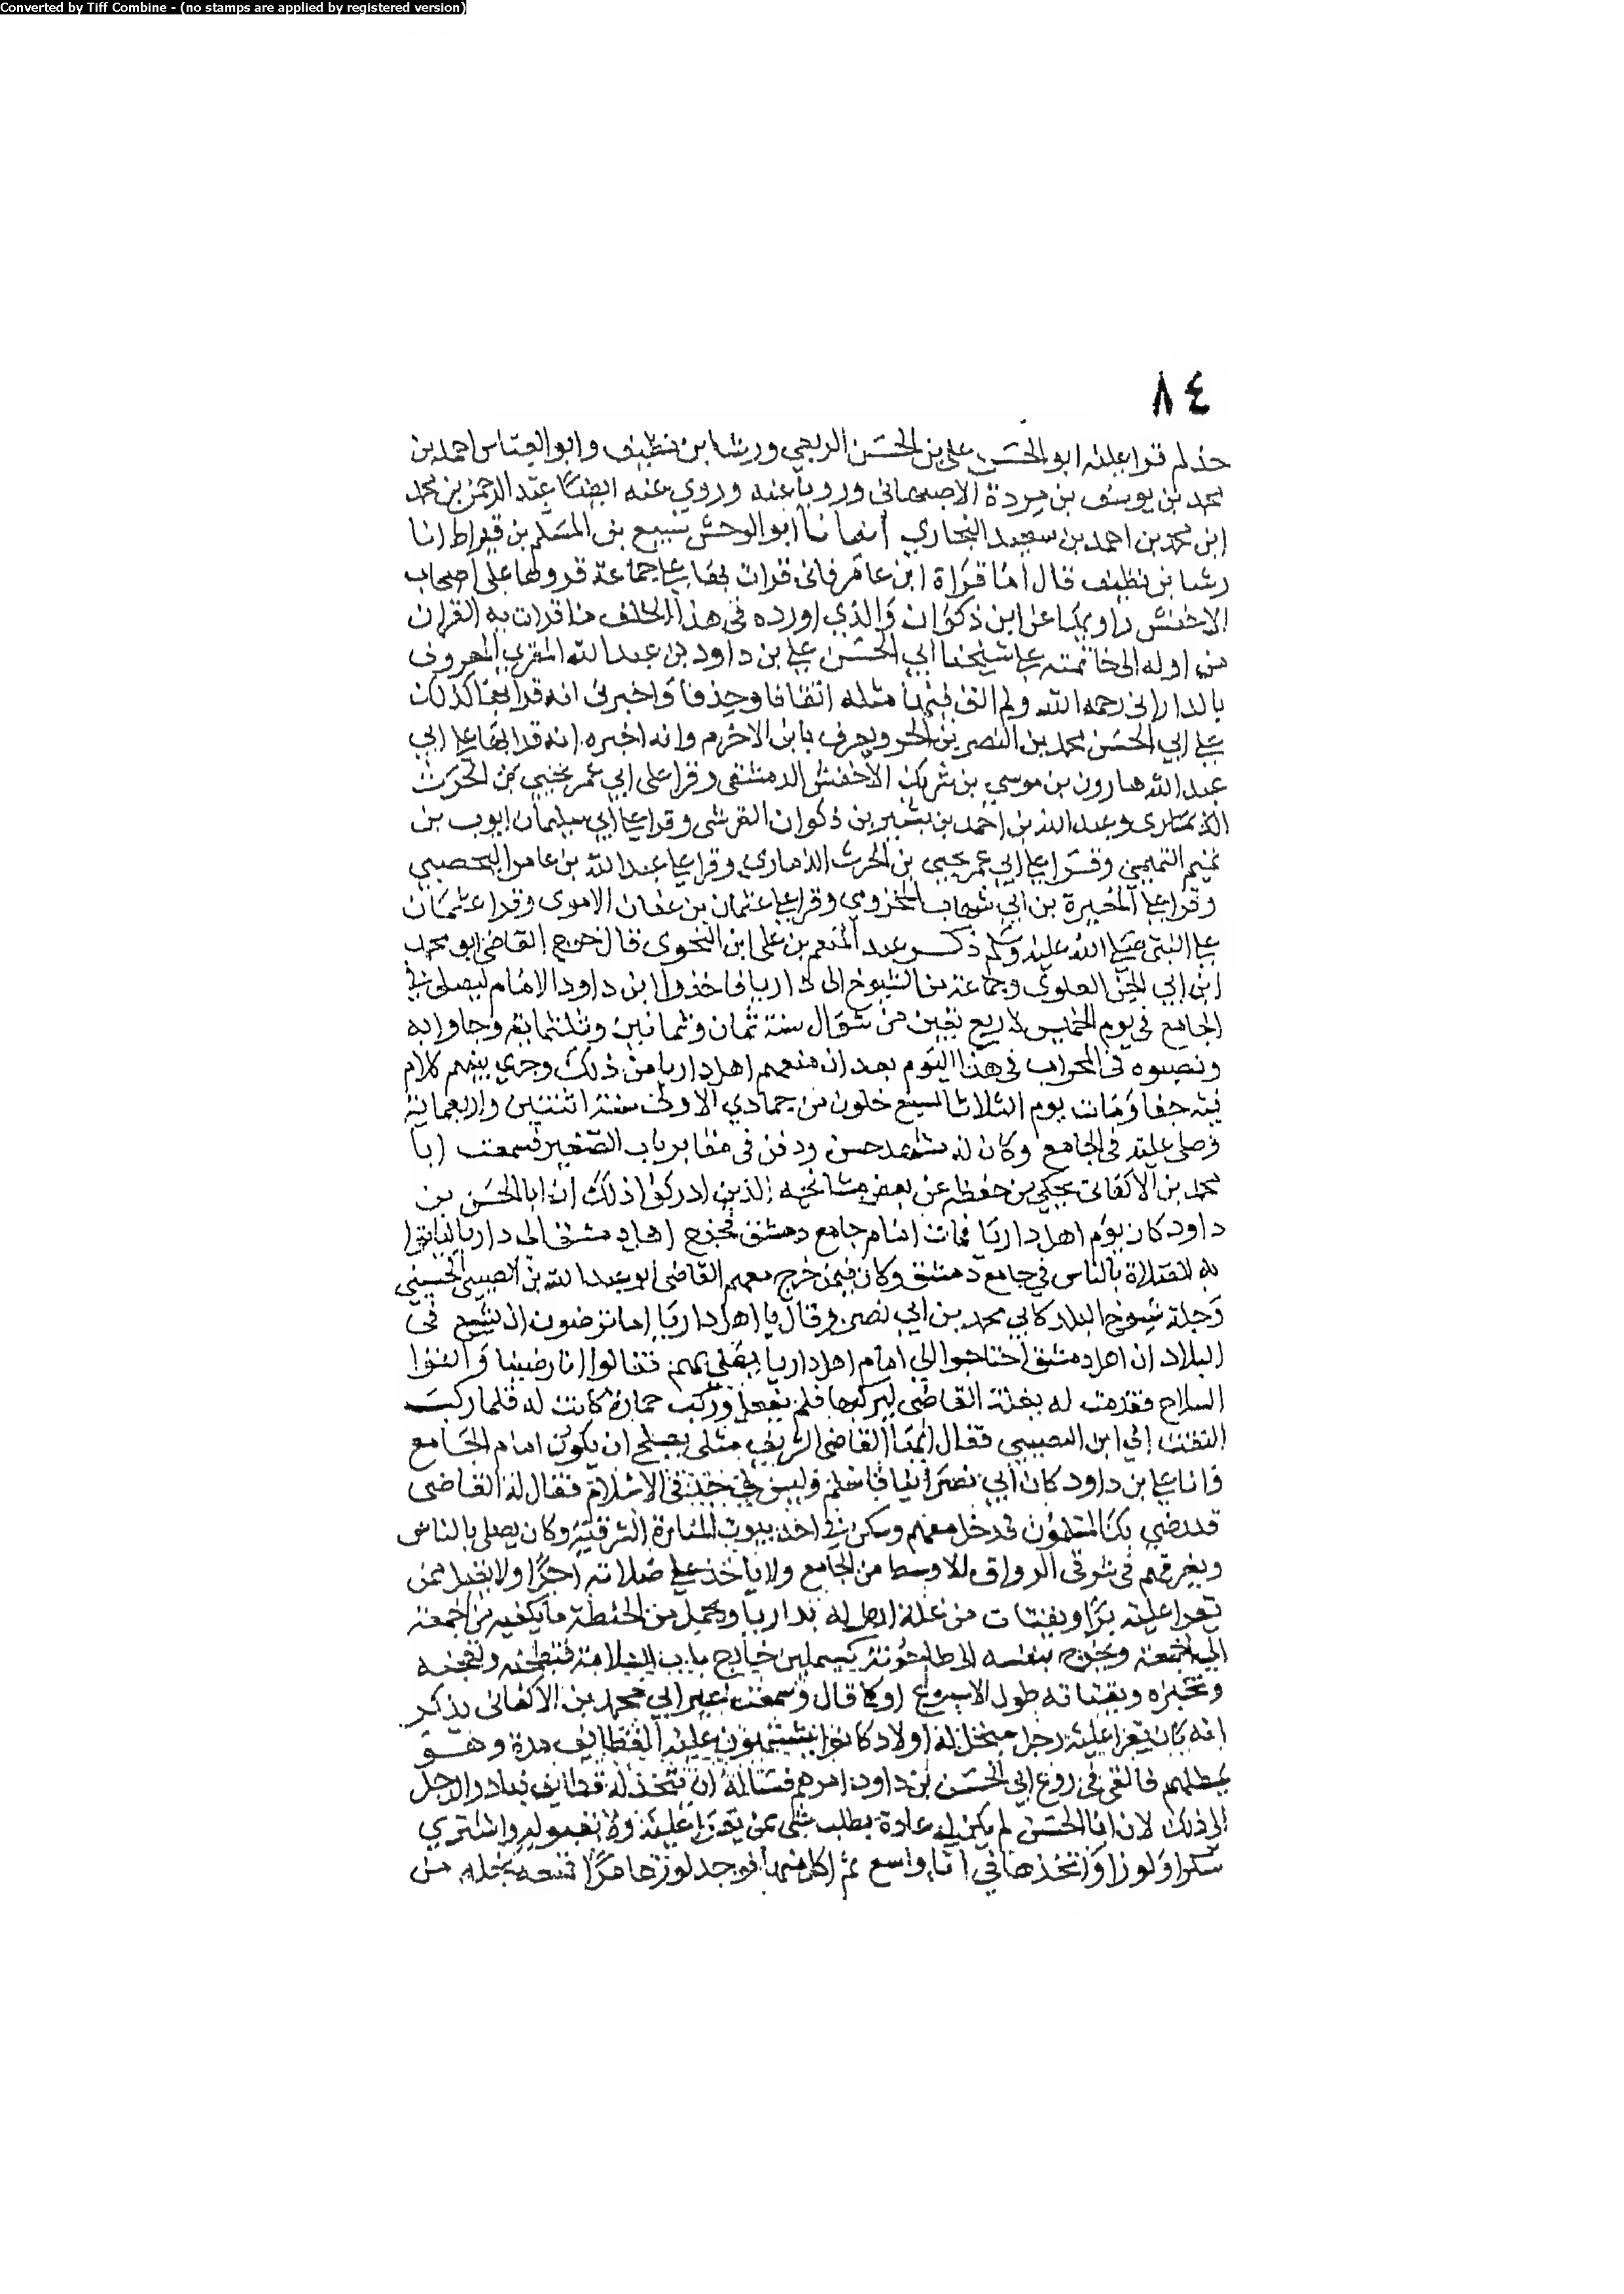 Converted by Tiff Combine - (no stamps are applied by registered version)
٨٤
حذلم قرا عليه ابو الحسن علي بن الحسن الربعي ورشا بن نظيف وابو العباس احمد بن
محمد بن يوسف بن مردة الاصبهاني ورويا عنه وروي عنه ايضا عبد الرحمن بن محمد
ابن محمد بن احمد بن سعيد البخاري انبانا ابو الوحش سبيع بن المسلم بن قيراط انا
رشا بن نظيف قال اما قراة ابن عامر فاني قرات بها علي جماعة قروا بها علي اصحاب
الاخفش راويها عن ابن ذكوان والذي اورده في هذا الخلف ما قرات به القران
من اوله الى خاتمته علي شيخنا ابي الحسن علي بن داود بن عبد الله المقري المعروف
بالداراني رحمه الله ولم الق فيها مثله اتقانا وحذقا واخبرني انه قرا بها كذلك
علي ابي الحسن محمد بن النصر بن الحر ويعرف بابن الاخرم وانه اخبره انه قرا بها علي ابي
عبد الله هارون بن موسي بن شريك الاخفش الدمشقي وقرا على ابي عمر يحيي بن الحرث
الذماري وعبد الله بن احمد بن بشير بن ذكوان القرشي وقرا علي ابي سليمان ايوب بن
تميم التميمي وقرا علي ابي عمر يحيي بن الحرث الذماري وقرا علي عبد الله بن عامر اليحصبي
وقرا علي المغيرة بن ابي شهاب المخزومي وقرا علي عثمان بن عفان الاموي وقرا عثمان
علي النبي صلي الله عليه وسلم ذكر عبد المنعم بن علي ابن النحوي قال خرج القاضي ابو محمد
ابن ابي الجن العلوي وجماعة من الشيوخ الى داريا فاخذوا ابن داود الامام ليصلي في
الجامع في يوم الخميس لاربع بقين من شوال سنة ثمان وثمانين وثلثماية وجاوا به
ونصبوه في المحراب في هذا اليوم بعد ان منعهم اهل داريا من ذلك وجري بينهم كلام
فيه جفا ومات يوم الثلاثا لسبع خلون من جمادي الاولى سنة اثنتين واربعمائة
وصلى عليه في الجامع وكان له مشهد حسن ودفن في مقابر باب الصغير فسمعت ابا
محمد بن الاكفاني يحكي من حفظه عن بعض مشائخه الذين ادركوا ذلك ان ابا الحسن بن
داود كان يوم اهل داريا فمات امام جامع دمشق فخرج اهل دمشق الى داريا لياتوا
به للصلاة بالناس في جامع دمشق وكان فيمن خرج معهم القاضي ابو عبد الله بن النصيبي الحسيني
وجلة شيوخ البلد كابي محمد بن ابي نصر وقال يا اهل داريا اما ترضون ان يشيع في
البلاد ان اهل دمشق احتاجوا الي امام اهل داريا يصلي بهم فقالوا انا رضينا والقوا
السلاح فقدمت له بغلة القاضي ليركبها فلم يفعل وركب حمارة كانت له فلما ركب
التفت الي ابن النصيبي فقال ايها القاضي الشريف مثلي يصلح ان يكون امام الجامع
وانا علي بن داود كان ابي نصرانيا فاسلم وليس لي جد في الاسلام فقال له القاضي
قد رضي بك المسلمون فدخل معهم وسكن في احد بيوت المنارة الشرقية وكان يصلي بالناس
ويقريهم في شرقي الرواق الاوسط من الجامع ولا ياخذ علي صلاته اجرا ولا يقبل ممن
يقرا عليه برا ويقتات من غلة ارض له بداريا ويحمل من الحنطة ما يكفيه من الجمعة
الي الجمعة ويخرج بنفسه الى طاحونة كسملين خارج باب السلامة فيطحنه ويعجنه
ويخبزه ويقتاته طول الاسبوع او كما قال وسمعت غير ابي محمد بن الاكفاني يذكر
انه كان يقرا عليه رجل مبخل له اولاد كانوا يشتهون عليه القطايف مدة وهو
يمطلهم فالقي في روع ابي الحسن بن داود امرهم فساله ان يتخذ له قطايف فبادر الرجل
الى ذلك لان ابا الحسن لم يكن له عادة بطلب شي ممن يقرا عليه ولا بقبوله واشتري
سكرا ولوزا واتخذها في انا واسع ثم اكل منها فوجد لوزها مرا فمنعه بخله من